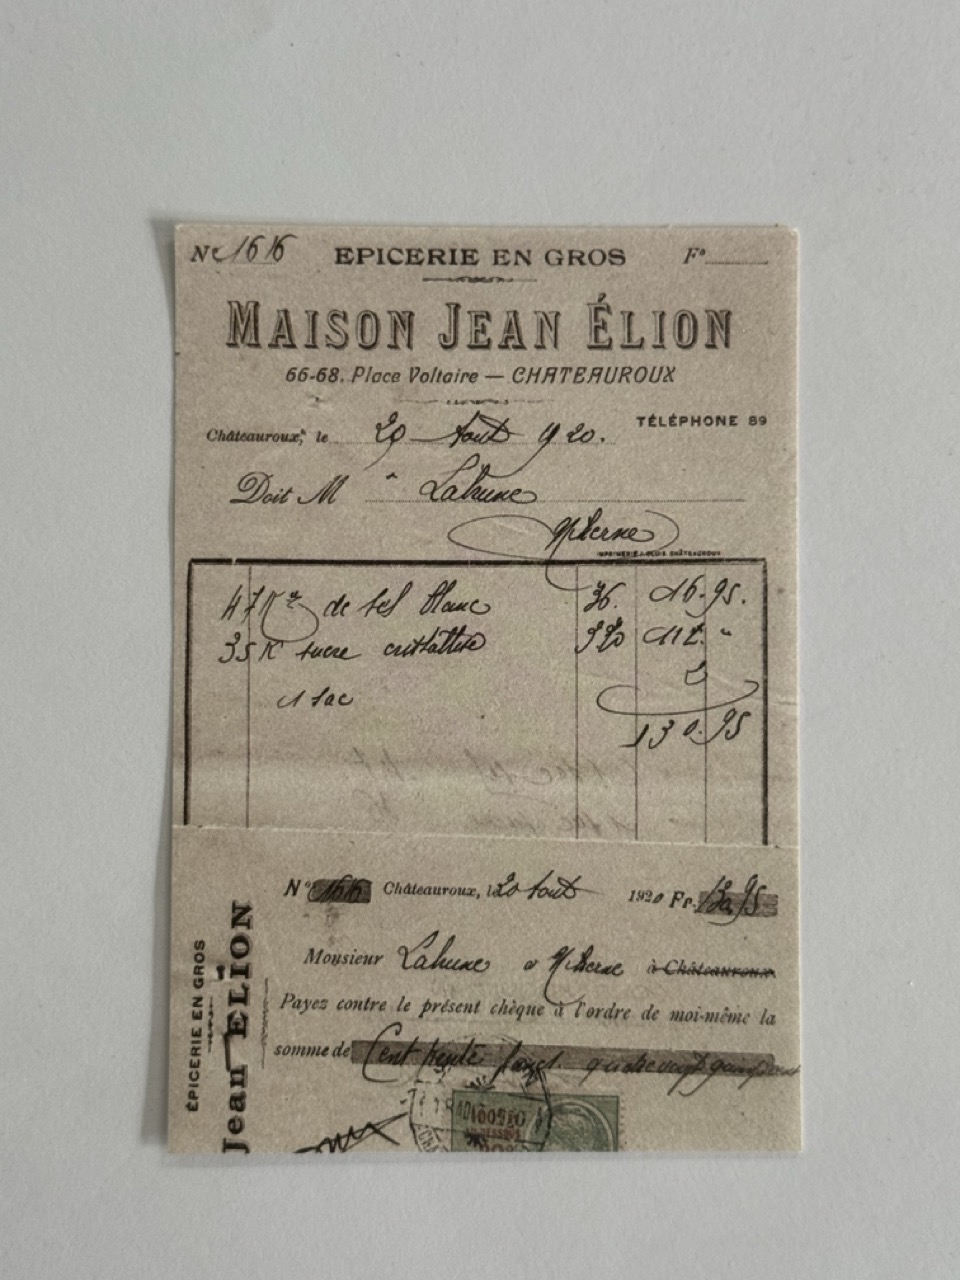 No 1616 EPICERIE EN GROS Fo
MAISON JEAN ÉLION
66-68, Place Voltaire — CHATEAUROUX
TÉLÉPHONE 89
Châteauroux, le 20 Aout 1920.
Doit M Lahune
Niherne
47 K de sel blanc 36. 16.95.
35 K sucre cristallisé 320 112. "
1 sac 2
130.95
No 1616 Châteauroux, le 20 Aout 1920 Fr. 130.95
Monsieur Lahune à Niherne à Châteauroux
Payez contre le présent chèque à l'ordre de moi-même la
somme de Cent trente francs quatrevingt quinze cent
ÉPICERIE EN GROS
Jean ÉLION